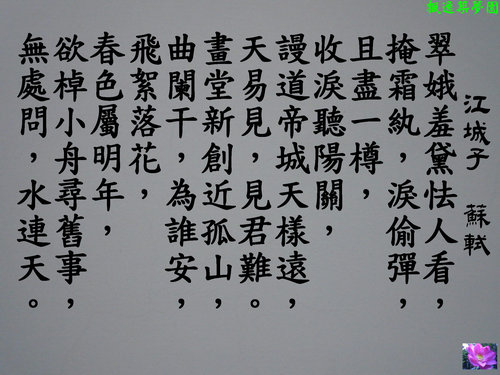 夢園
江城子 蘇軾
翠娥羞黛怯人看，
掩霜紈，淚偷彈，
且盡一樽，
收淚聽陽關，
謾道帝城天樣遠，
天易見，見君難。
畫堂新創近孤山，
曲闌干，為誰安，
飛絮落花，
春色屬明年，
欲棹小舟尋舊事，
無處問，水連天。